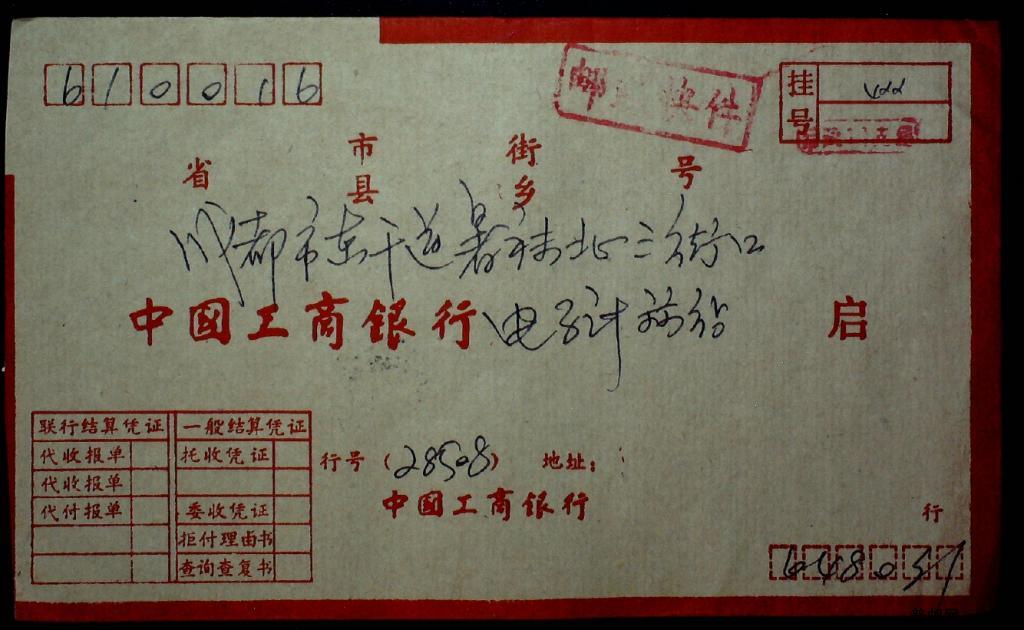 610016
挂号
邮 快件
省 市县 街乡 号
成都市东干道暑袜北三街口
中國工商銀行电子计 启
联行结算凭证 一般结算凭证
代收报单 托收凭证
代收报单
代付报单 委收凭证
拒付理由书
查询查复书
行号（28508） 地址：
中國工商银行
行